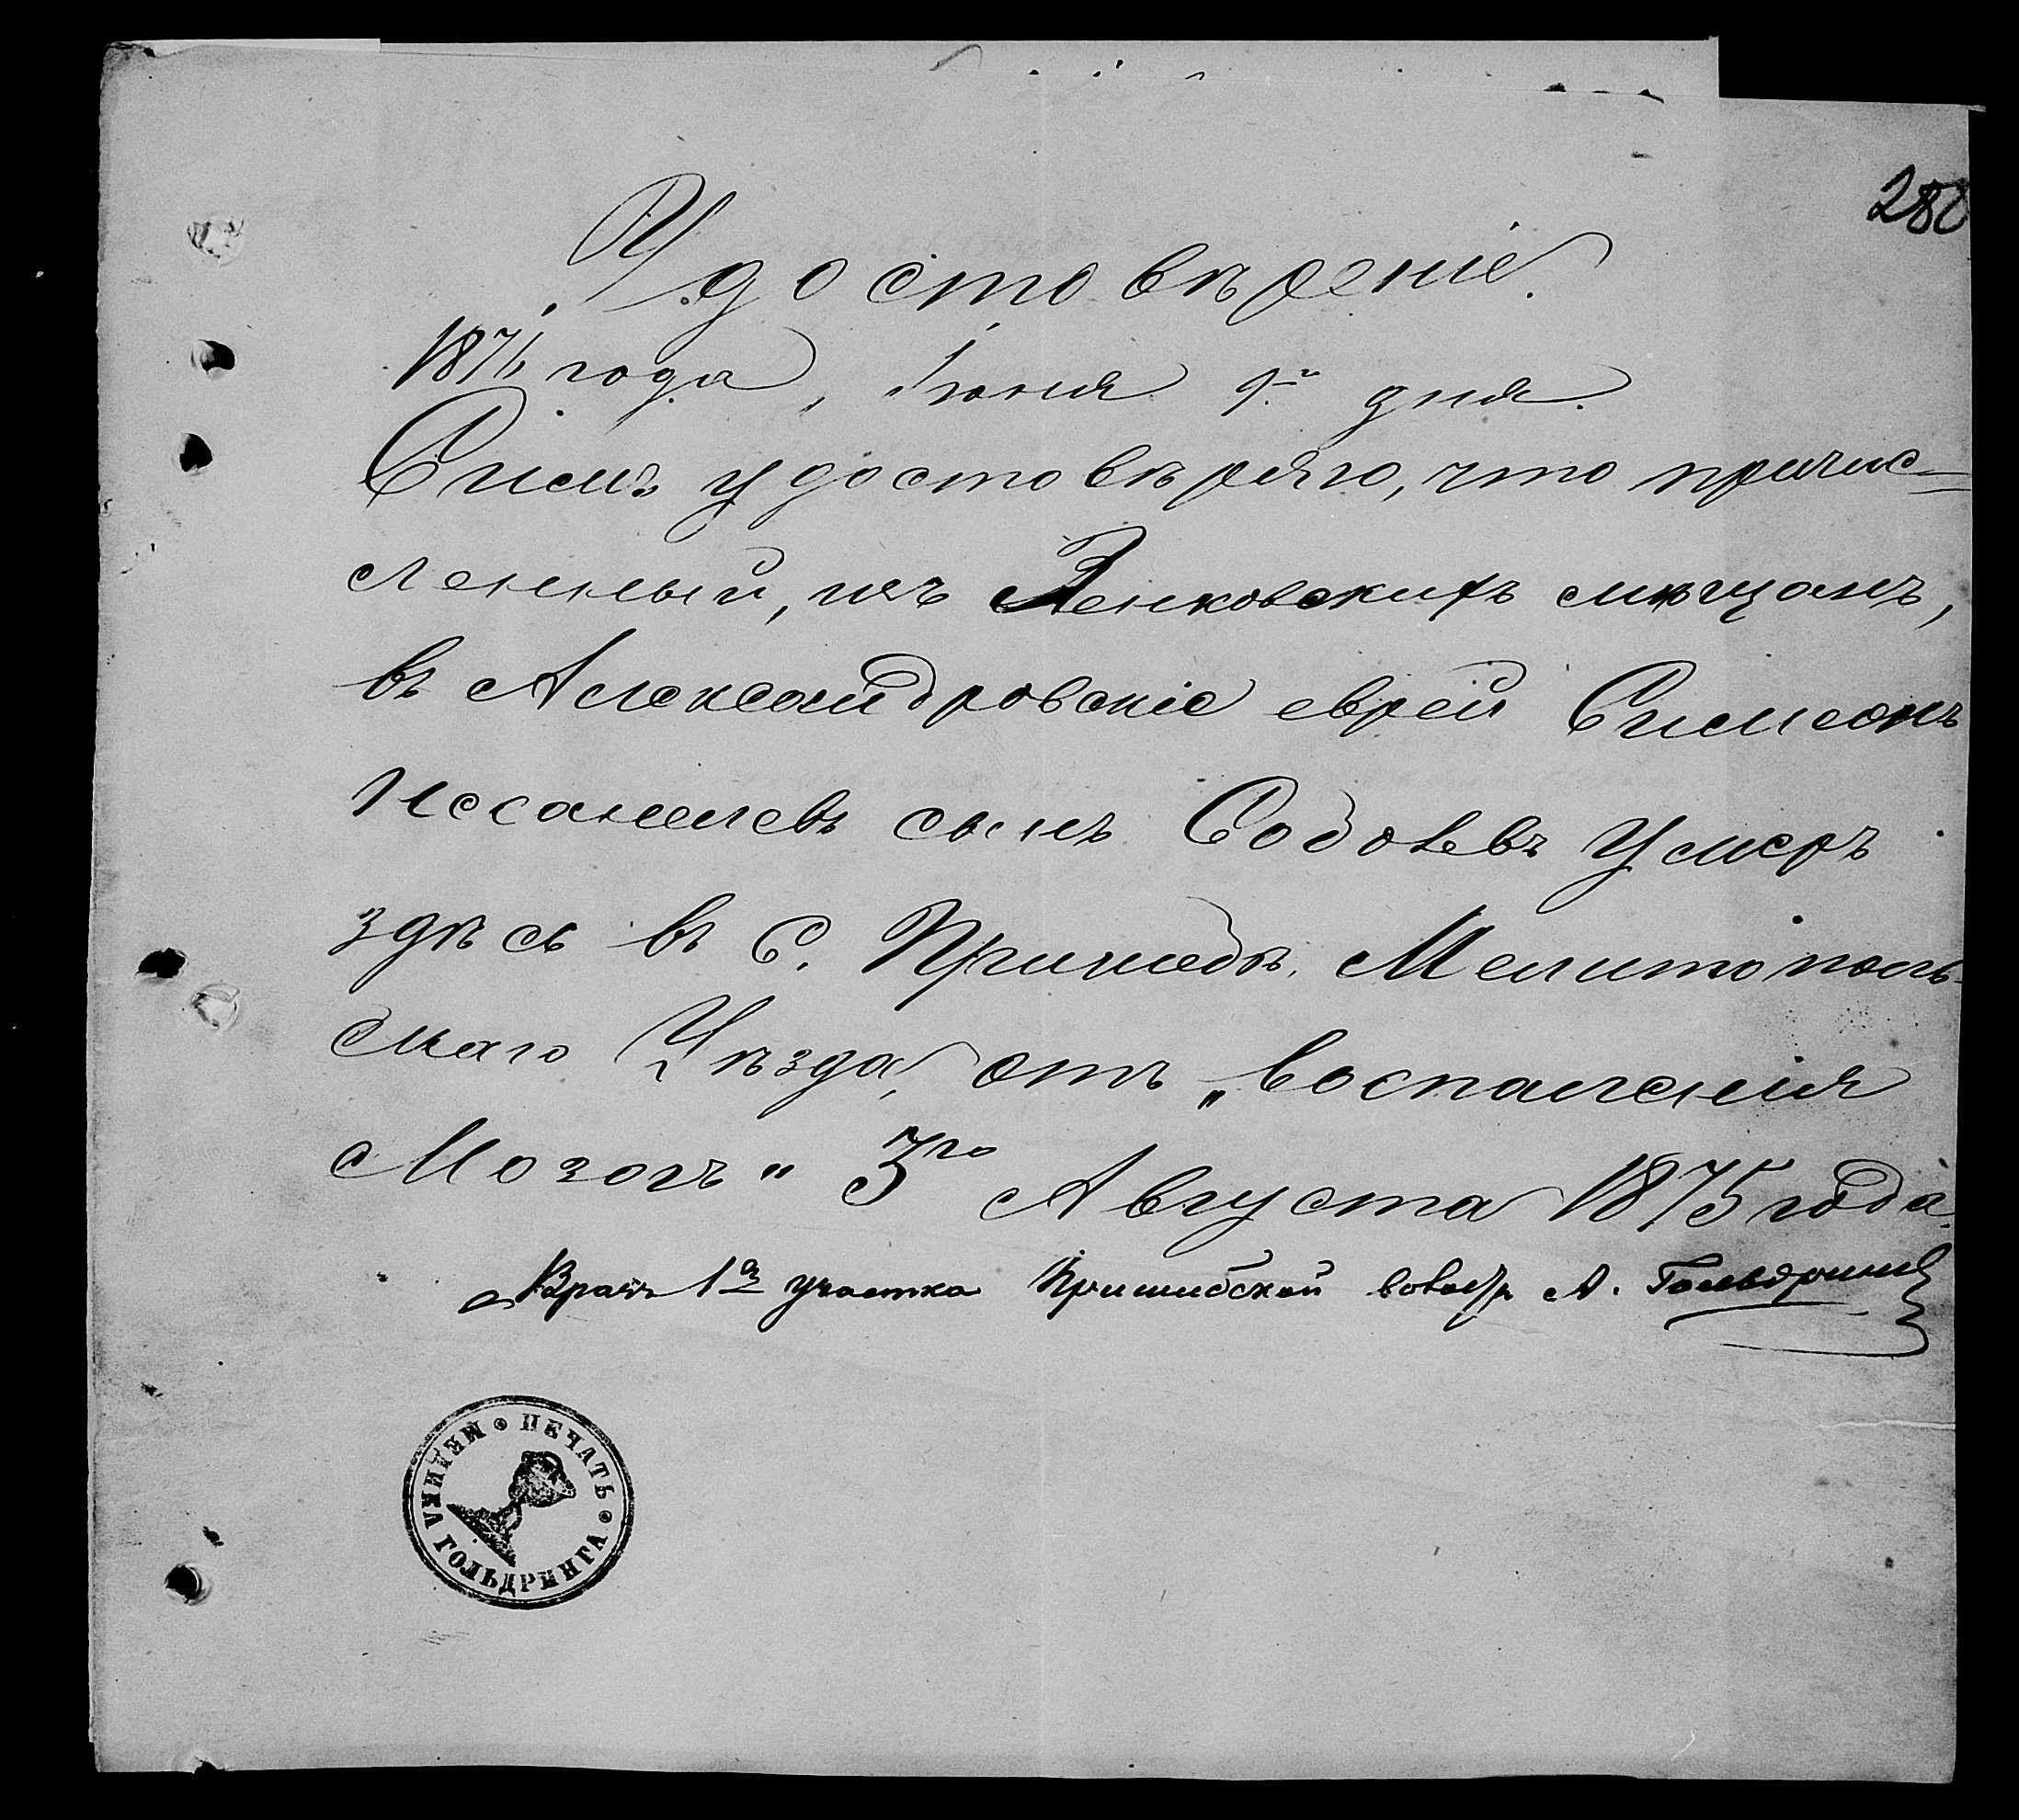 280
Удостовѣреніе.
1876 года, Іюня 9го дня.
Симъ удостовѣряю, что причис-
ленный, изъ Зенковскихъ мѣщанъ,
въ Александровскіе еврей Симеонъ
сынъ Соболевъ умеръ
здѣсь въ С. Пришибѣ, Мелитополь-
скаго Уѣзда, отъ „воспаленія
Мозогъ" 3го Августа 1875 года.
Врачъ 1го участка Пришибской А. Гольдрингъ
ПЕЧАТЬ МЕДИКА ГОЛЬДРИНГА